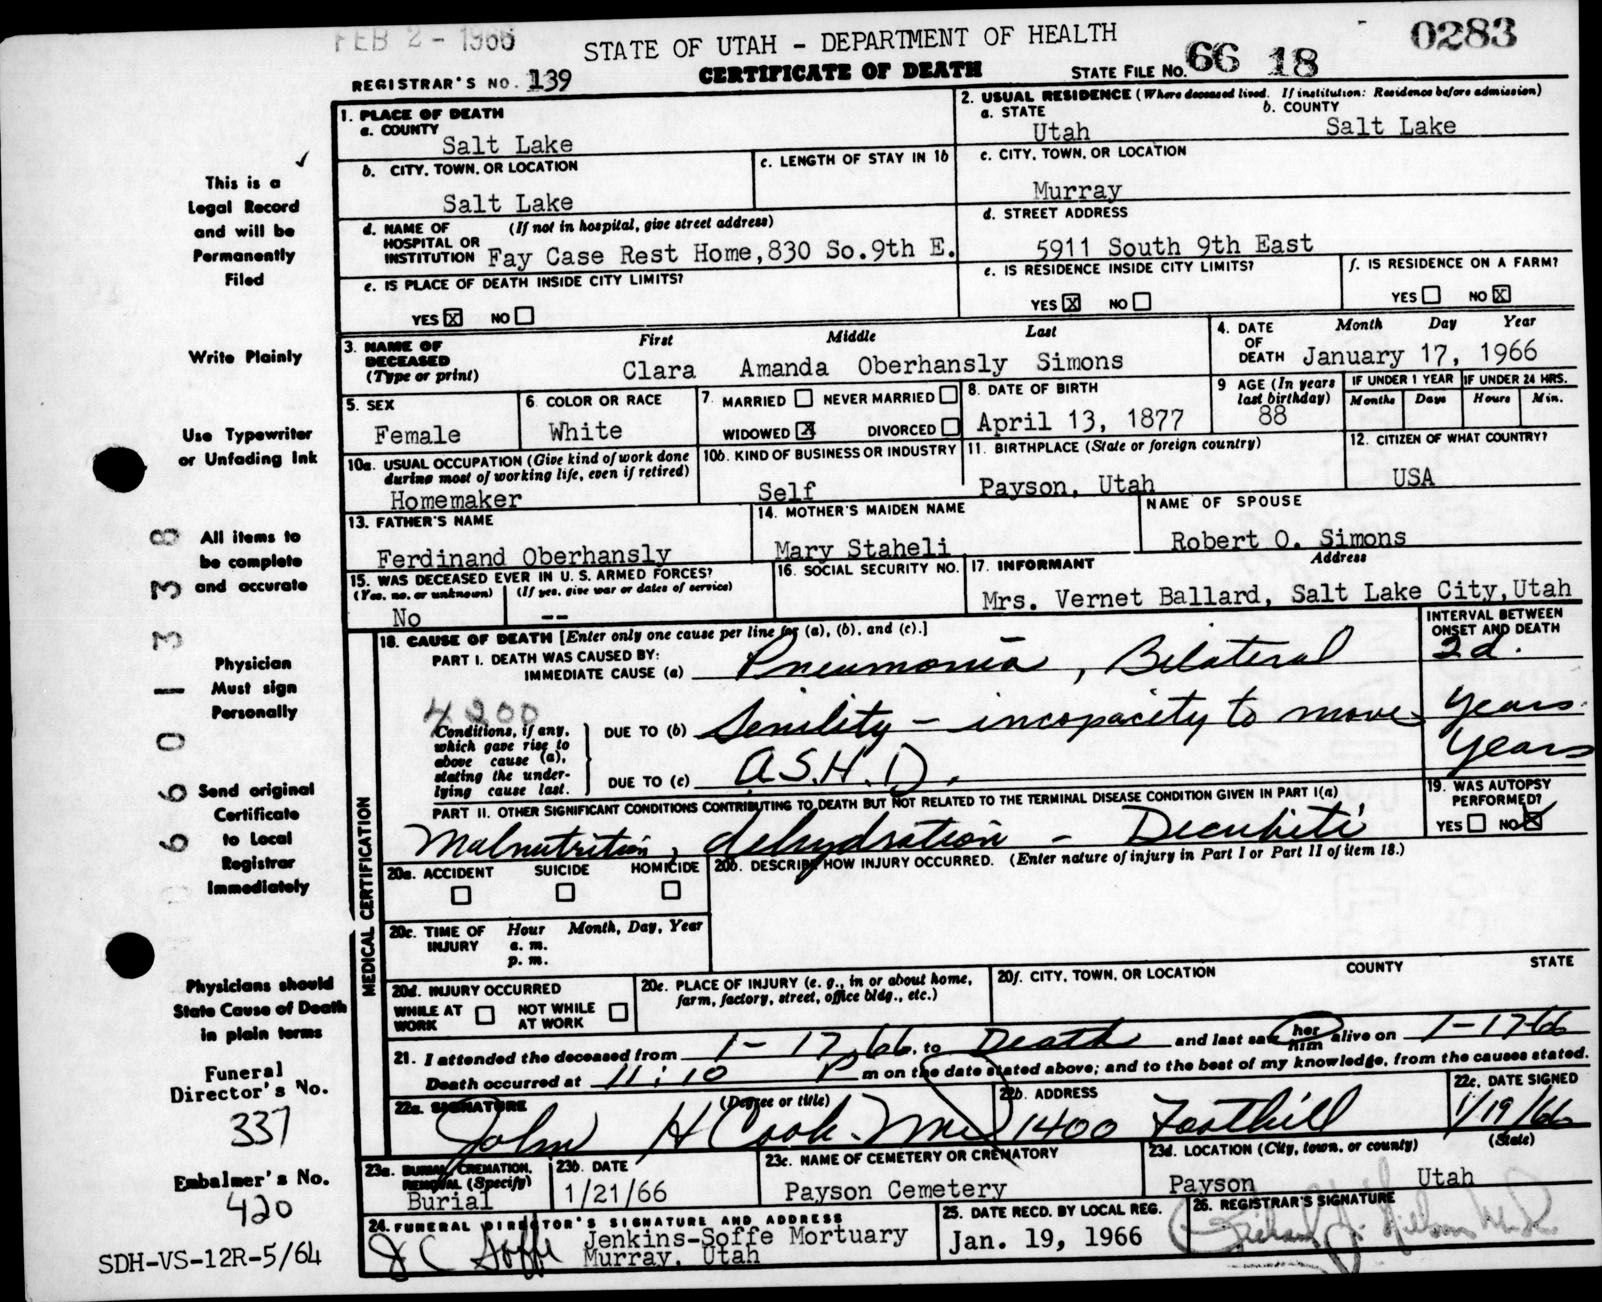 FEB 2 - 1966
STATE OF UTAH - DEPARTMENT OF HEALTH
0283
REGISTRAR'S NO. 139
CERTIFICATE OF DEATH
STATE FILE NO. 66 18
1. PLACE OF DEATH
a. COUNTY
Salt Lake
2. USUAL RESIDENCE (Where deceased lived. If institution: Residence before admission)
a. STATE
Utah
b. COUNTY
Salt Lake
b. CITY, TOWN, OR LOCATION
Salt Lake
c. LENGTH OF STAY IN 1b
c. CITY, TOWN, OR LOCATION
Murray
d. NAME OF HOSPITAL OR INSTITUTION
(If not in hospital, give street address)
Fay Case Rest Home,830 So.9th E.
d. STREET ADDRESS
5911 South 9th East
e. IS PLACE OF DEATH INSIDE CITY LIMITS?
YES X NO
e. IS RESIDENCE INSIDE CITY LIMITS?
YES X NO
f. IS RESIDENCE ON A FARM?
YES NO X
3. NAME OF DECEASED
(Type or print)
First Middle Last
Clara Amanda Oberhansly Simons
4. DATE OF DEATH
Month Day Year
January 17, 1966
5. SEX
Female
6. COLOR OR RACE
White
7. MARRIED NEVER MARRIED
WIDOWED X DIVORCED
8. DATE OF BIRTH
April 13, 1877
9 AGE (In years last birthday)
88
IF UNDER 1 YEAR
Months Days
IF UNDER 24 HRS.
Hours Min.
10a. USUAL OCCUPATION (Give kind of work done during most of working life, even if retired)
Homemaker
10b. KIND OF BUSINESS OR INDUSTRY
Self
11. BIRTHPLACE (State or foreign country)
Payson, Utah
12. CITIZEN OF WHAT COUNTRY?
USA
13. FATHER'S NAME
Ferdinand Oberhansly
14. MOTHER'S MAIDEN NAME
Mary Staheli
NAME OF SPOUSE
Robert O. Simons
15. WAS DECEASED EVER IN U.S. ARMED FORCES?
(Yes, no, or unknown) (If yes, give war or dates of service)
No --
16. SOCIAL SECURITY NO.
17. INFORMANT Address
Mrs. Vernet Ballard, Salt Lake City,Utah
18. CAUSE OF DEATH [Enter only one cause per line for (a), (b), and (c).]
INTERVAL BETWEEN ONSET AND DEATH
PART I. DEATH WAS CAUSED BY:
IMMEDIATE CAUSE (a) Pneumonia, Bilateral 2d.
4200
Conditions, if any, which gave rise to above cause (a), stating the underlying cause last.
DUE TO (b) Senility - incapacity to move years
DUE TO (c) A.S.H.D. years
PART II. OTHER SIGNIFICANT CONDITIONS CONTRIBUTING TO DEATH BUT NOT RELATED TO THE TERMINAL DISEASE CONDITION GIVEN IN PART I(a)
Malnutrition, dehydration - Decubiti
19. WAS AUTOPSY PERFORMED?
YES NO X
MEDICAL CERTIFICATION
20a. ACCIDENT SUICIDE HOMICIDE
20b. DESCRIBE HOW INJURY OCCURRED. (Enter nature of injury in Part I or Part II of item 18.)
20c. TIME OF INJURY
Hour Month, Day, Year
a. m.
p. m.
20d. INJURY OCCURRED
WHILE AT WORK NOT WHILE AT WORK
20e. PLACE OF INJURY (e. g., in or about home, farm, factory, street, office bldg., etc.)
20f. CITY, TOWN, OR LOCATION COUNTY STATE
21. I attended the deceased from 1-17-66, to Death and last saw her him alive on 1-17-66
Death occurred at 11:10 P m on the date stated above; and to the best of my knowledge, from the causes stated.
22a. SIGNATURE (Degree or title)
John H Cook. MD
22b. ADDRESS
1400 Foothill
22c. DATE SIGNED
1/19/66
23a. BURIAL, CREMATION, REMOVAL (Specify)
Burial
23b. DATE
1/21/66
23c. NAME OF CEMETERY OR CREMATORY
Payson Cemetery
23d. LOCATION (City, town, or county) (State)
Payson Utah
24. FUNERAL DIRECTOR'S SIGNATURE AND ADDRESS
J C Soffe
Jenkins-Soffe Mortuary
Murray, Utah
25. DATE RECD. BY LOCAL REG.
Jan. 19, 1966
26. REGISTRAR'S SIGNATURE
This is a
Legal Record
and will be
Permanently
Filed
Write Plainly
Use Typewriter
or Unfading Ink
All items to
be complete
and accurate
Physician
Must sign
Personally
Send original
Certificate
to Local
Registrar
Immediately
Physicians should
State Cause of Death
in plain terms
Funeral
Director's No.
337
Embalmer's No.
420
SDH-VS-12R-5/64
06601338